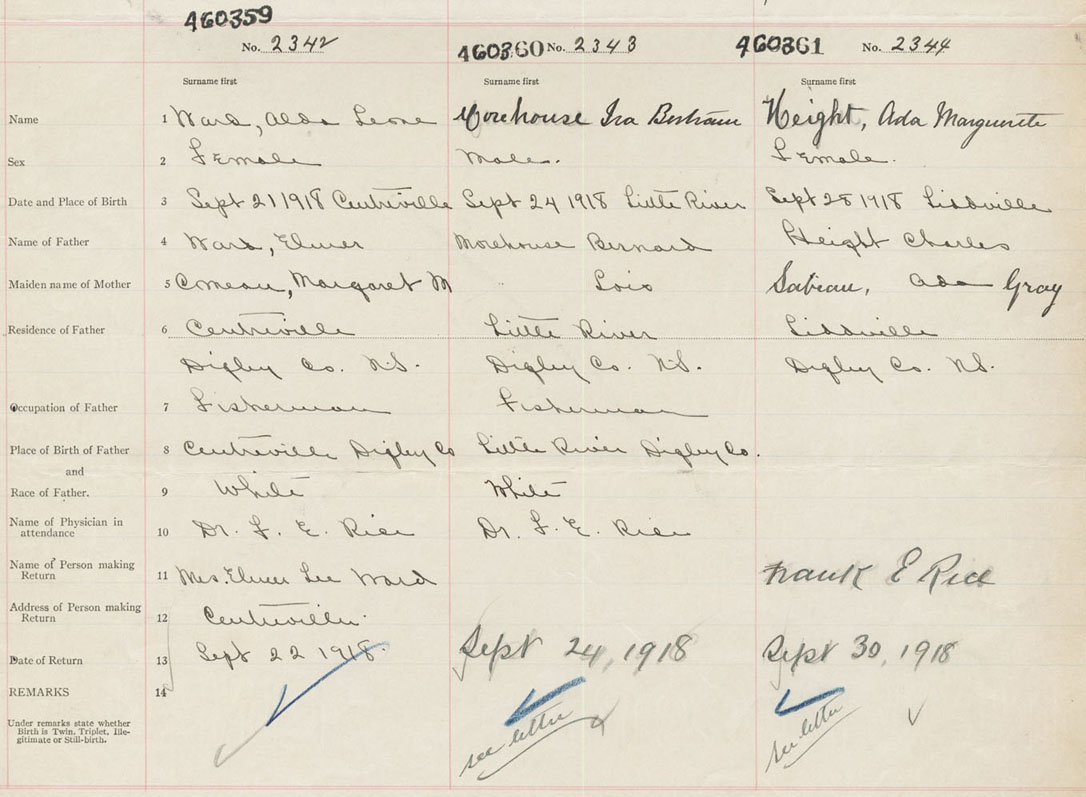 460359
No. 2342
460360 No. 2343
460361 No. 2344
Surname first Surname first Surname first
Name 1 Ward, Alda Leone Morehouse Ira Bertram Height, Ada Marguerite
Sex 2 Female Male. Female.
Date and Place of Birth 3 Sept 21 1918 Centreville Sept 24 1918 Little River Sept 28 1918
Name of Father 4 Ward, Elmer Morehouse Bernard Height Charles
Maiden name of Mother 5 Comeau, Margaret M Lois Sabean, Ada Gray
Residence of Father 6 Centreville Little River
Digby Co. N.S. Digby Co. N.S. Digby Co. N.S.
Occupation of Father 7 Fisherman Fisherman
Place of Birth of Father 8 Centreville Digby Co Little River Digby Co.
and
Race of Father. 9 White White
Name of Physician in
attendance 10 Dr. F. E. Rice Dr. F. E. Rice
Name of Person making
Return 11 Mrs. Elmer Lee Ward Frank E Rice
Address of Person making
Return 12 Centreville.
Date of Return 13 Sept 22 1918. Sept 24, 1918 Sept 30, 1918
REMARKS 14
see letter see letter
Under remarks state whether
Birth is Twin, Triplet, Ille-
gitimate or Still-birth.